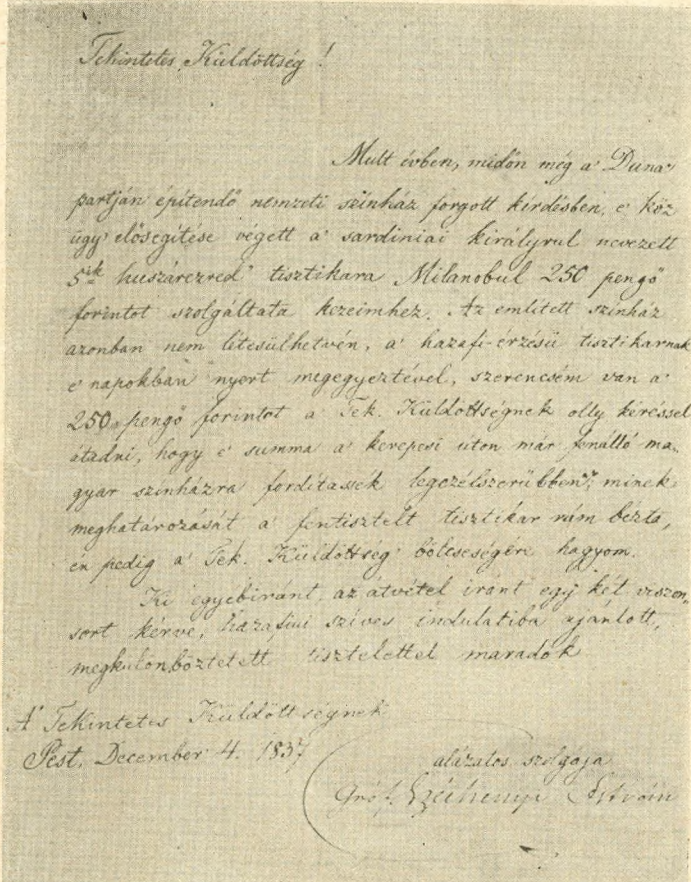 Tekintetes Küldöttség!
Mult évben, midőn még a' Duna
partján építendő nemzeti színház forgott kérdésben, e' köz
ügy elősegítése végett a' sardiniai királyrul nevezett
5ik huszárezred' tisztikara Milanobul 250 pengő
forintot szolgáltata kezeimhez. Az említett színház
azonban nem létesülhetvén, a' hazafi-érzésü tisztikarnak
e' napokban nyert megegyeztével, szerencsém van a'
250 pengő forintot a' Tek. Küldöttségnek olly kéréssel
átadni, hogy e' summa a' kerepesi úton már fenálló ma-
gyar színházra fordítassék legczélszerűbben, minek
meghatározását a' fentisztelt tisztikar rám bízta,
én pedig a' Tek. Küldöttség' bölcseségére hagyom.
Ki egyebiránt, az átvétel iránt egy két viszon-
sort kérve, hazafiui szíves indulatiba ajánlott,
megkülönböztetett tisztelettel maradok
A' Tekintetes Küldöttségnek
Pest, December 4. 1837
alázatos szolgája
Gróf Széchenyi István